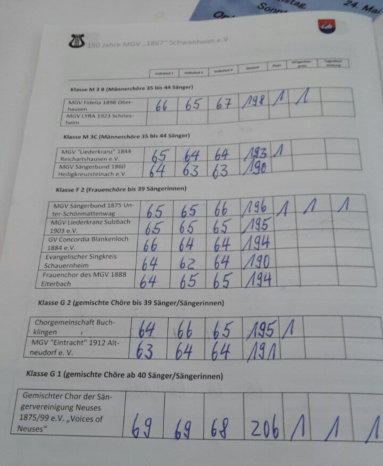 24. Mai
150 Jahre MGV „1867" Schwanheim e.V.
Klasse M 3 B (Männerchöre 35 bis 44 Sänger)
MGV Fidelia 1898 Ober- 66 65 67 198 1 1
hausen
MGV LYRA 1923 Schries-
heim
Klasse M 3C (Männerchöre 35 bis 44 Sänger)
MGV "Liederkranz" 1844 65 64 64 193 1
Reichartshausen e.V.
MGV Sängerbund 1860 64 63 63 190
Heiligkreuzsteinach e.V.
Klasse F 2 (Frauenchöre bis 39 Sängerinnen)
MGV Sängerbund 1875 Un- 65 65 66 196 1 1 1
ter-Schönmattenwag
MGV Liederkranz Sulzbach 65 65 65 195
1903 e.V.
GV Concordia Blankenloch 66 64 64 194
1884 e.V.
Evangelischer Singkreis 64 62 64 190
Schauernheim
Frauenchor des MGV 1888 64 65 65 194
Eiterbach
Klasse G 2 (gemischte Chöre bis 39 Sänger/Sängerinnen)
Chorgemeinschaft Buch- 64 66 65 195 1
klingen
MGV "Eintracht" 1912 Alt- 63 64 64 191
neudorf e. V.
Klasse G 1 (gemischte Chöre ab 40 Sänger/Sängerinnen)
Gemischter Chor der Sän-
gervereinigung Neuses
1875/99 e.V. „Voices of
Neuses" 69 69 68 206 1 1 1